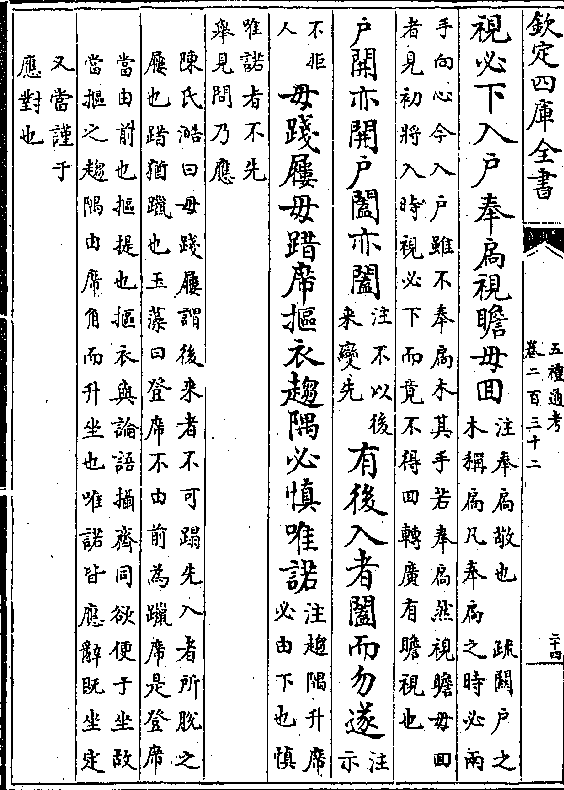 欽定四庫全書
五禮通考
卷二百三十二
二十四
視必下入户奉扃視瞻毋回
注奉扃敬也　疏闗户之
木稱扃凡奉扃之時必兩
手向心今入户雖不奉扃木其手若奉扃然視瞻毋回
者見初將入時視必下而竟不得回轉廣有瞻視也
户開亦開户闔亦闔
注不以後
来變先
有後入者闔而勿遂
注示
不拒
人
毋踐屨毋踖席摳衣趨隅必慎唯諾
注趨隅升席
必由下也慎
唯諾者不先
舉見問乃應
陳氏澔曰毋踐屨謂後来者不可蹋先入者所脱之
屨也踖猶躐也玉藻曰登席不由前為躐席是登席
當由前也摳提也摳衣與論語攝齊同欲便于坐故
當摳之趨隅由席角而升坐也唯諾皆應辭既坐定
又當謹于
應對也